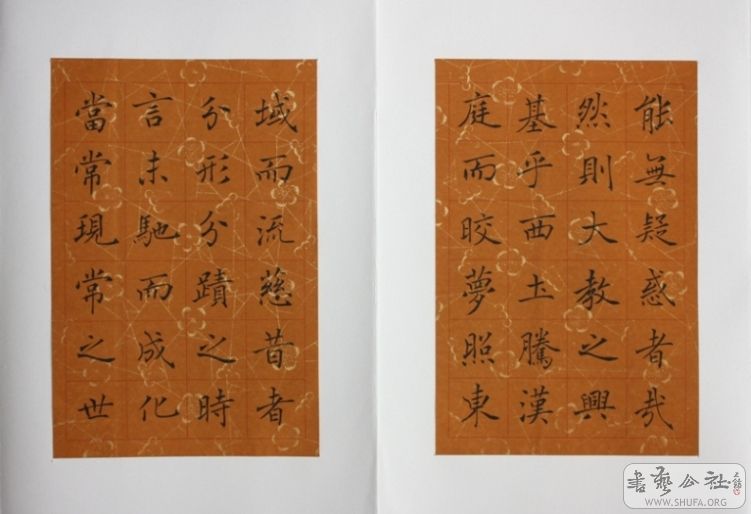 能無疑惑者哉
然則大教之興
基乎西土騰漢
庭而皎夢照東
域而流慈昔者
分形分蹟之時
言未馳而成化
當常現常之世
書藝公社
WWW.SHUFA.ORG